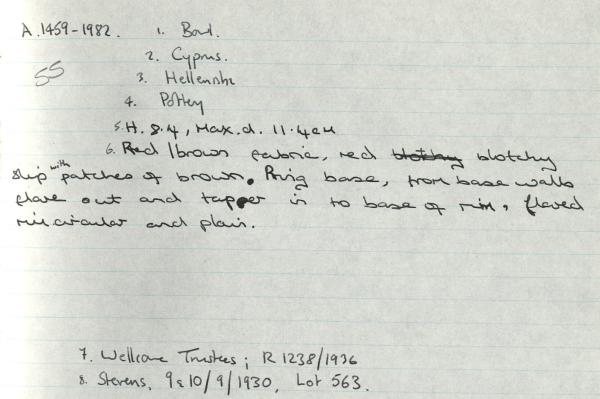 A.1459-1982. 1. Bowl.
2. Cyprus.
SS
3. Hellenistic
4. Pottery
5. H. 8.4, Max. d. 11.4cm
6. Red/brown fabric, red blotchy blotchy
slip with patches of brown. Ring base, from base walls
flare out and tapper in to base of rim, flared
rim circular and plain.
7. Wellcome Trustees; R 1238/1936
8. Stevens, 9 & 10/9/1930, Lot 563.